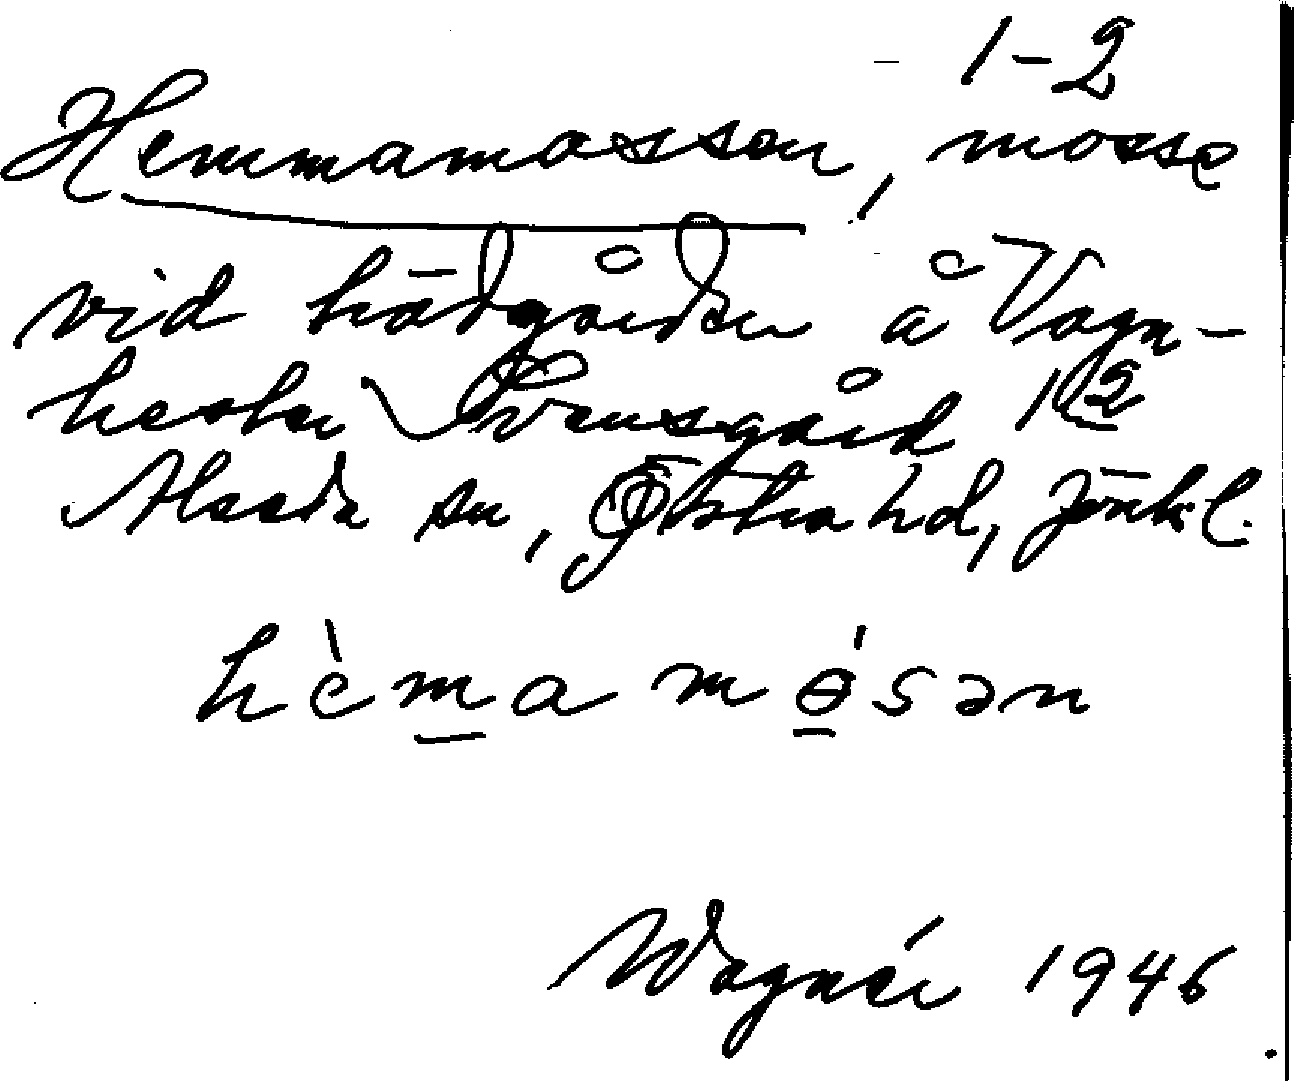 1-2
Hemmamossen, mosse
vid trädgården å Vagn-
hester Svensgård 1/2
Alseda sn, Östra hd, Jönk.l.
hèmamósən
Wagnér 1946